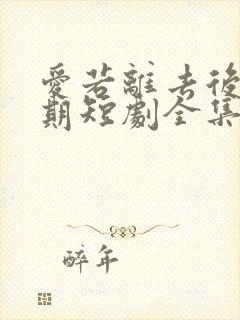 愛若離去後
期短劇全集
醉年